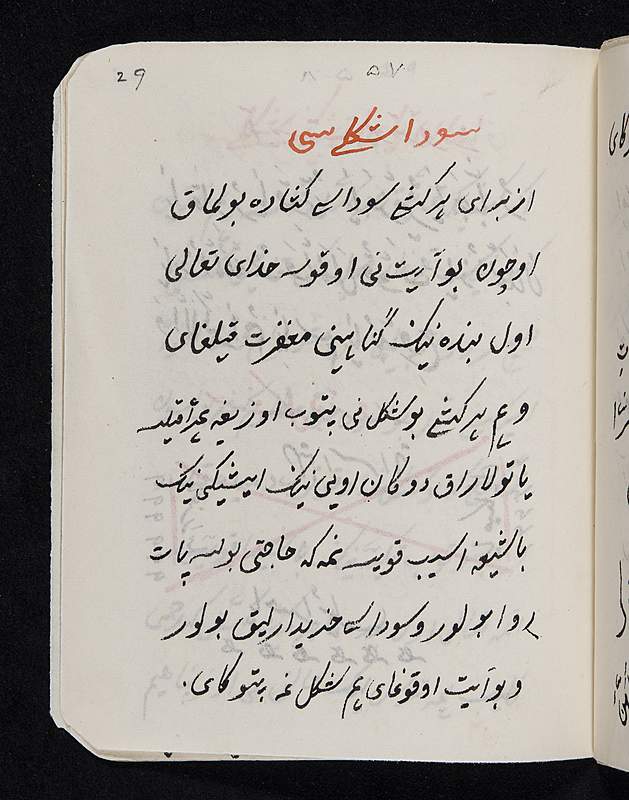 29
۵۷
سودا شکلی سی
از برای هر کشی سوداسی کشاده بولماق
اوچون بو آیت نی اوقوسه خدای تعالی
اول بنده نیک گناهینی مغفرت قیلغای
و هم هر کشی بو شکل نی بتوب اوزیغه
یا تولاراق دوکان اویی نیک ایشیکی نیک
باشیغه اسیب قویسه نمه که حاجتی بولسه
روا بولور و سوداسی خریدارلیق بولور
و بو آیت اوقوغای هم شکل نه بتوکای.